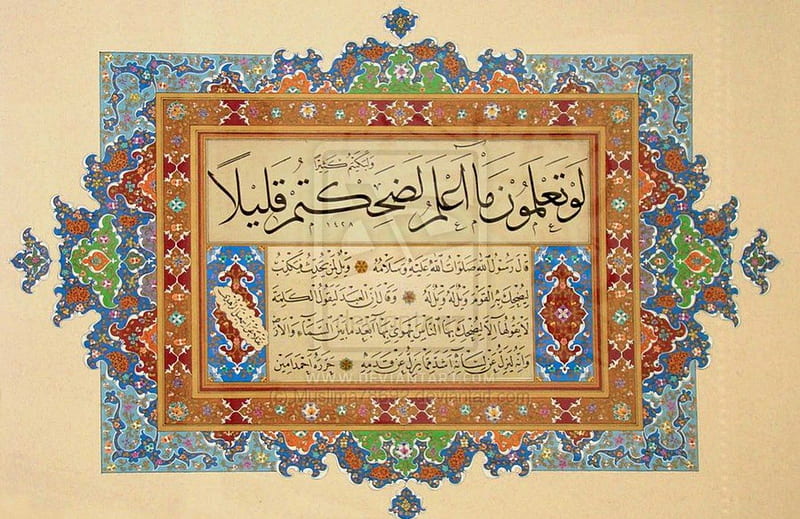 وَلَبَكَيْتُمْ كَثِيرًا
لَوْ تَعْلَمُونَ مَا أَعْلَمُ لَضَحِكْتُمْ قَلِيلًا
قال رسول الله صلوات الله عليه وسلامه ويل لمن يحدث فيكذب
ليضحك به القوم ويل له ويل له وقال إن العبد ليقول الكلمة
لا يقولها إلا ليضحك بها الناس يهوى بها أبعد ما بين السماء والأرض
وإنه ليزل عن لسانه أشد مما يزل عن قدميه حرره أحمد أمين
WWW.DEVIANTART.COM
.deviantart.com